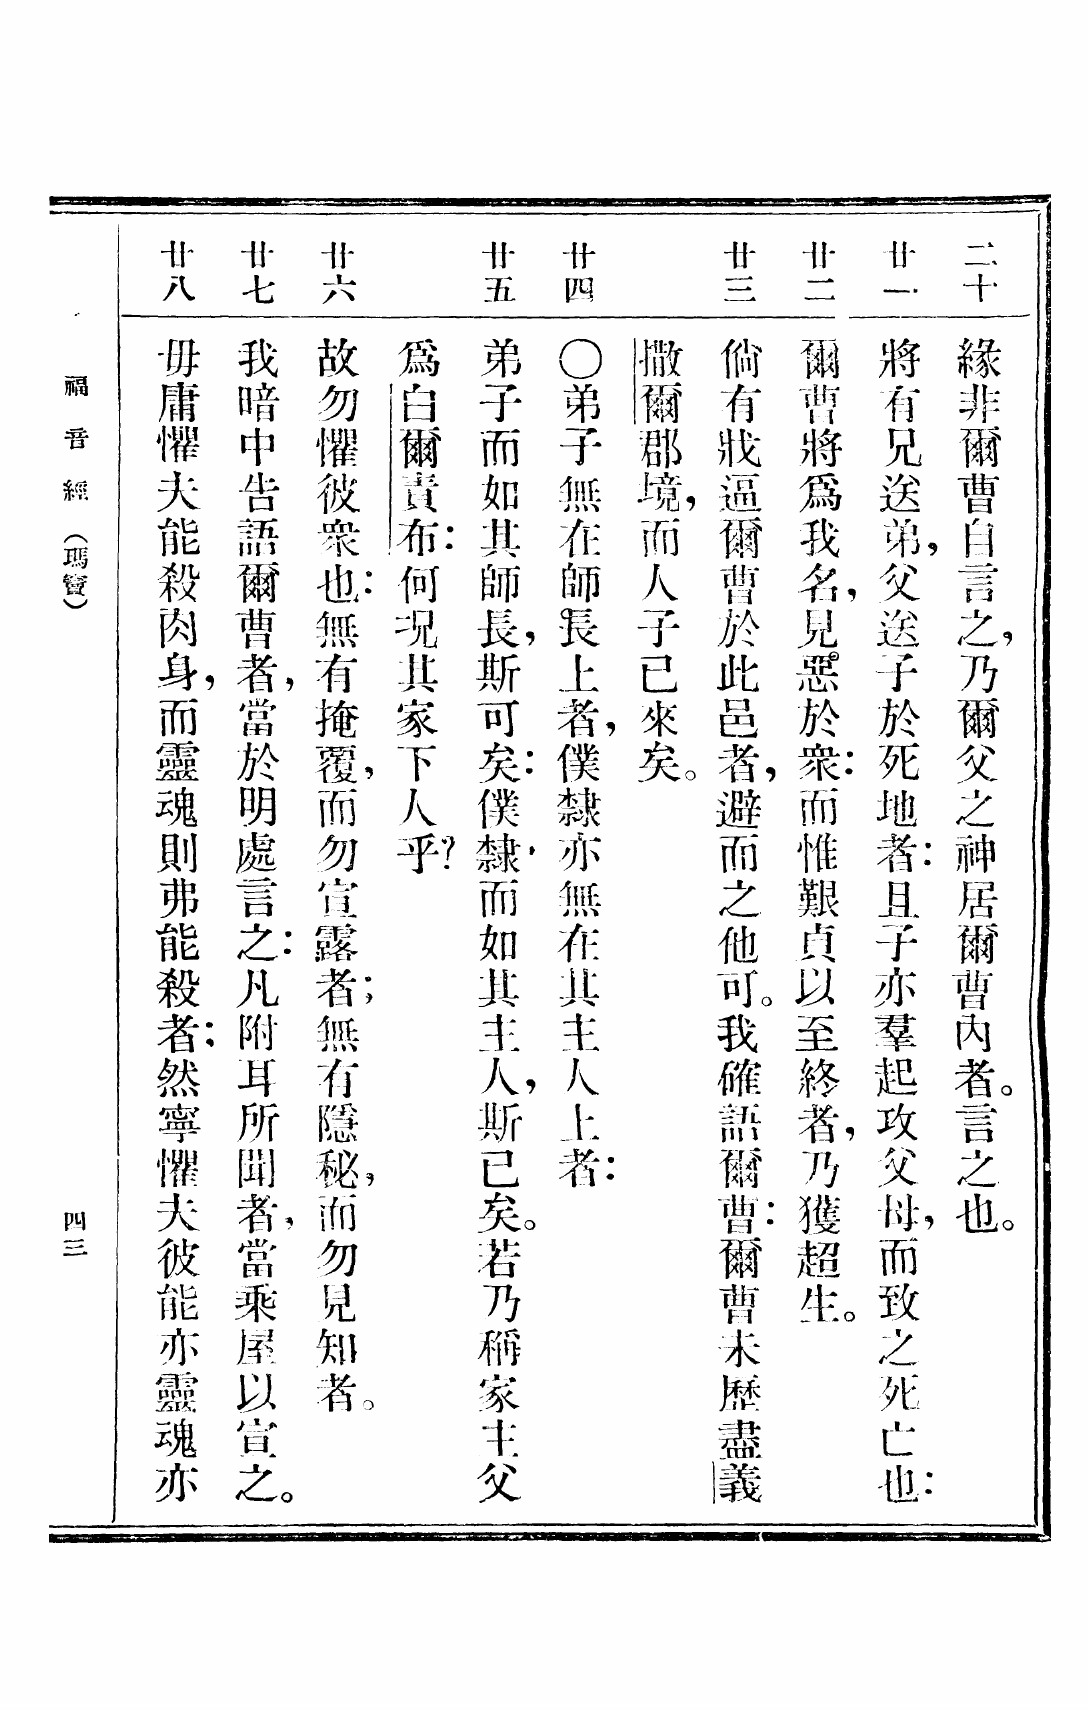 二十 緣非爾曹自言之，乃爾父之神居爾曹內者。言之也。
廿一 將有兄送弟，父送子於死地者：且子亦羣起攻父母，而致之死亡也：
廿二 爾曹將爲我名，見惡於衆：而惟艱貞以至終者，乃獲超生。
廿三 倘有戕逼爾曹於此邑者，避而之他可。我確語爾曹：爾曹未歷盡義
撒爾郡境，而人子已來矣。
廿四 〇弟子無在師長上者，僕隸亦無在其主人上者：
廿五 弟子而如其師長，斯可矣：僕隸，而如其主人，斯已矣。若乃稱家主父
爲白爾責布：何况其家下人乎？
廿六 故勿懼彼衆也：無有掩覆，而勿宣露者；無有隱秘，而勿見知者。
廿七 我暗中告語爾曹者，當於明處言之：凡附耳所聞者，當乘屋以宣之。
廿八 毋庸懼夫能殺肉身，而靈魂則弗能殺者：然寧懼夫彼能亦靈魂亦
福音經（瑪竇） 四三